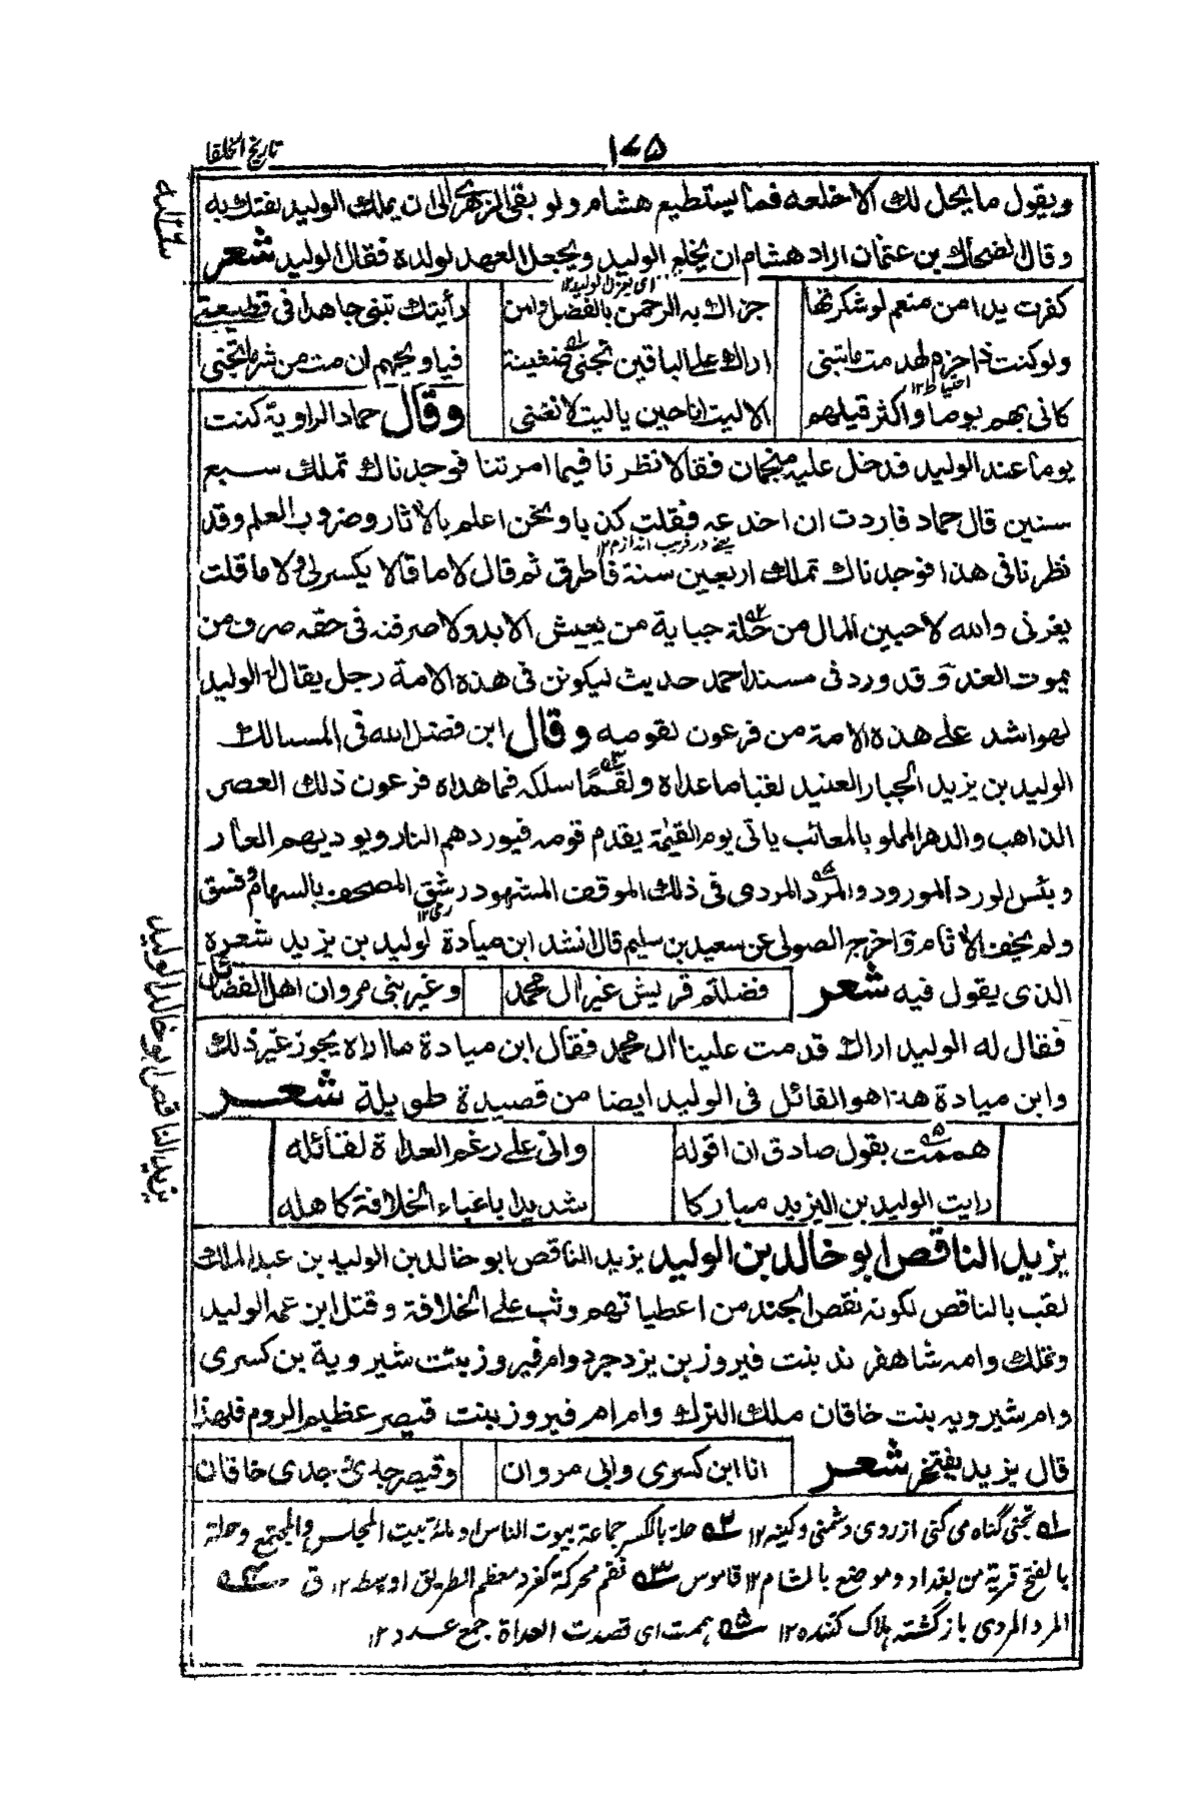 تاريخ الخلفا
١٧٥
ويقول ما يحل لك الا خلعه فما يستطيع هشام ولو بقى الزهرى الى ان يملك الوليد لفتك به
وقال الضحاك بن عثمان اراد هشام ان يخلع الوليد ويجعل العهد لولده فقال الوليد شعر
كفرت يدا من منعم لو شكرتها جزاك به الرحمن بالفضل وامن رأيتك تبنى جاهدا فى قطيعة
ولو كنت ذا حزم لهدمت ما تبنى اراك على الباقين تجنى ضغينة فيا ويحهم ان مت من شر ما تجنى
كانى بهم يوما واكثر قيلهم الا ليت انا حين يا ليت لا تغنى وقال حماد الراوية كنت
يوما عند الوليد فدخل عليه منجمان فقالا نظرنا فيما امرتنا فوجدناك تملك سبع
سنين قال حماد فاردت ان اخدعه فقلت كذبا ونحن اعلم بالاثار وضروب العلم وقد
نظرنا فى هذا فوجدناك تملك اربعين سنة فاطرق ثم قال لا ما قالا يكسرنى ولا ما قلت
يغرنى والله لاجبين المال من حلة جباية من يعيش الابد ولاصرفنه فى حقه صرف من
يموت الغد وقد ورد فى مسند احمد حديث ليكونن فى هذه الامة رجل يقال له الوليد
لهو اشد على هذه الامة من فرعون لقومه وقال ابن فضل الله فى المسالك
الوليد بن يزيد الجبار العنيد لقبا ما عداه ولقما سلكه فما هداه فرعون ذلك العصر
الذاهب والدهر المملو بالمعائب ياتى يوم القيمة يقدم قومه فيوردهم النار ويرديهم العار
وبئس الورد المورود والمرد المردى فى ذلك الموقف المشهود رشق المصحف بالسهام وفسق
ولم يخف الاثام واخرج الصولى عن سعيد بن سليم قال انشد ابن ميادة لوليد بن يزيد شعره
الذى يقول فيه شعر فضلتم قريش غير ال محمد وغير بنى مروان اهل الفضائل
فقال له الوليد اراك قدمت علينا ال محمد فقال ابن ميادة ما اراه يجوز غير ذلك
وابن ميادة هذا هو القائل فى الوليد ايضا من قصيدة طويلة شعر
هممت بقول صادق ان اقوله وانى على رغم العداة لقائله
رايت الوليد بن اليزيد مباركا شديدا باعباء الخلافة كاهله
يزيد الناقص ابو خالد بن الوليد يزيد الناقص ابو خالد بن الوليد بن عبد الملك
لقب بالناقص لكونه نقص الجند من اعطياتهم وثب على الخلافة وقتل ابن عمه الوليد
وتملك وامه شاهفرند بنت فيروز بن يزدجرد وام فيروز بنت شيروية بن كسرى
وام شيرويه بنت خاقان ملك الترك وام ام فيروز بنت قيصر عظيم الروم فلهذا
قال يزيد يفتخر شعر انا ابن كسرى وابى مروان وقيصر جدى وجدى خاقان
يزيد الناقص ابو خالد بن الوليد
اى يعزل الوليد ١٢
احتياط ١٢
يعنى در فريب اندازم ١٢
رمى ١٢
١ تجنى گناه مى كنى از روى دشمنى وكينه ١٢ ٢ حلة بالكسر جماعة بيوت الناس او مائة بيت المجلس والمجتمع وحلة
بالفتح قرية من بغداد وموضع بالشام ١٢ قاموس ٣ لقم محركة كفرد معظم الطريق او وسطه ١٢ ق ٤
المرد المردى باز گشته هلاك كننده ١٢ ٥ هممت اى قصدت العداة جمع عدو ١٢